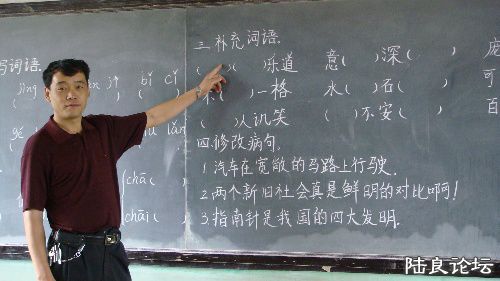 写词语.
jīng
jì
bǐ cǐ
gé
lǎn
chā( )
chāi( )
三.补充词语.
( )( )乐道 意( )深( ) 庞
不( )一格 水( )石( ) 可
( )人讥笑 ( )不安( ) 百
四.修改病句.
1.汽车在宽敞的马路上行驶.
2.两个新旧社会真是鲜明的对比啊!
3.指南针是我国的四大发明.
陆良论坛